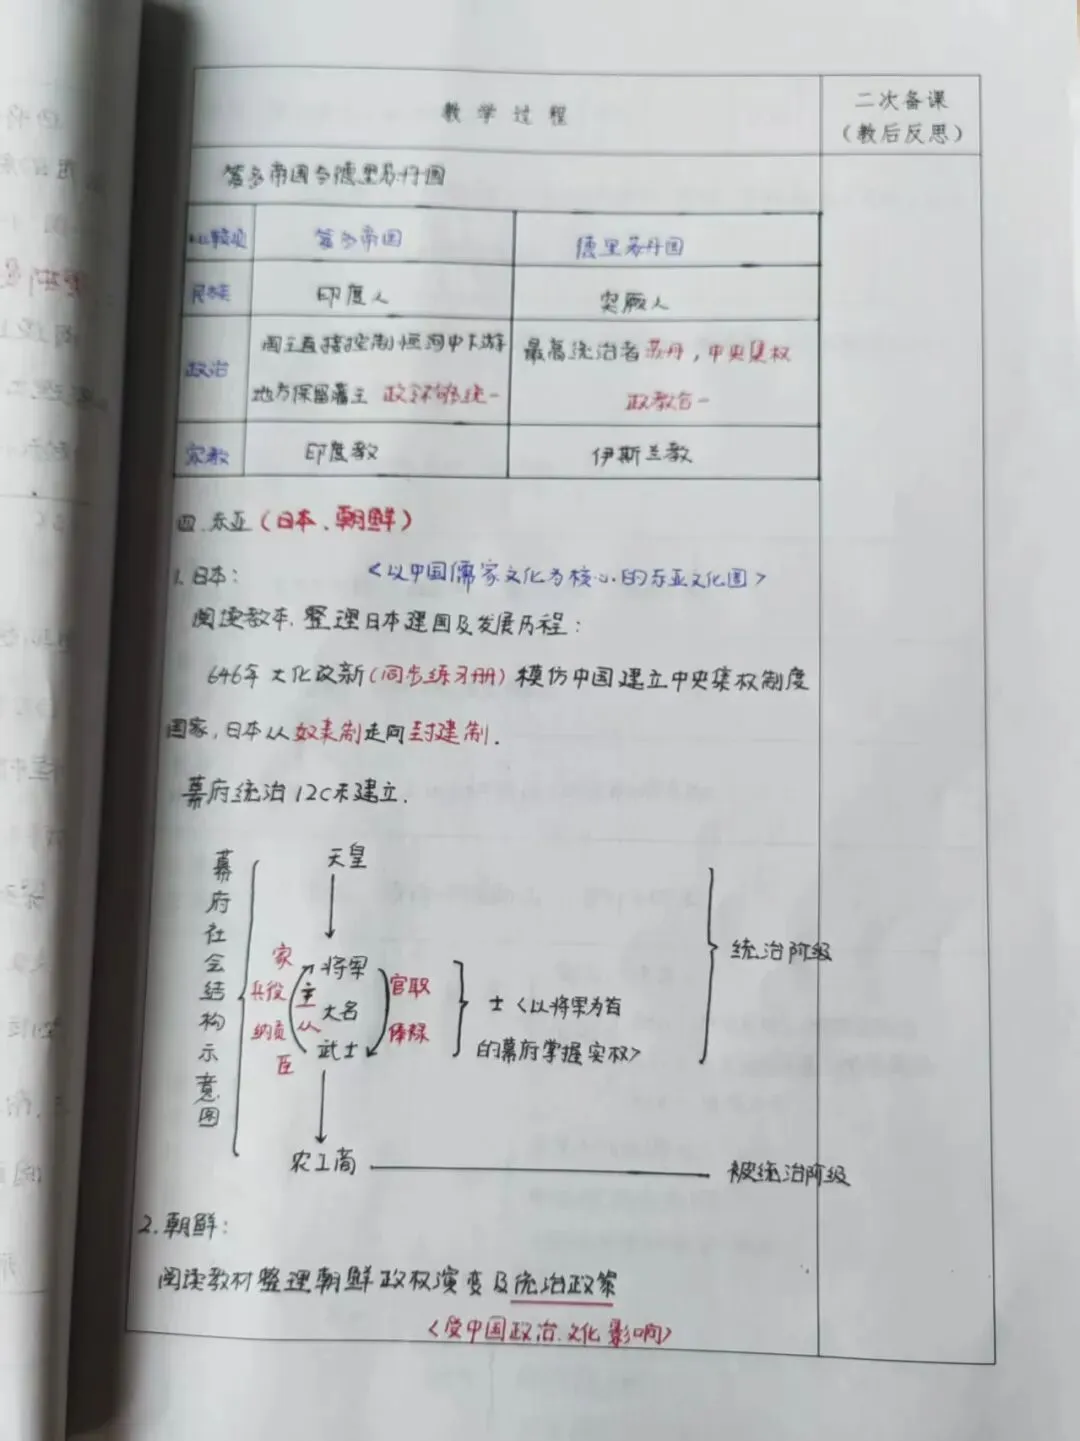 教学过程
二次备课
(教后反思)
笈多帝国与德里苏丹国
比较项 笈多帝国 德里苏丹国
民族 印度人 突厥人
政治 国王直接控制恒河中下游 最高统治者苏丹，中央集权
地方保留藩主 政合一
宗教 印度教 伊斯兰教
四、东亚(日本、朝鲜)
1. 日本: <以中国儒家文化为核心的东亚文化圈>
阅读教本,整理日本建国及发展历程:
646年大化改新(同步练习册)模仿中国建立中央集权制度
国家,日本从奴隶制走向封建制.
幕府统治12C末建立.
幕府社会结构示意图
天皇
将军
大名
武士
农工商
家
臣
主
从
兵役
纳贡
官职
俸禄
士<以将军为首
的幕府掌握实权>
统治阶级
被统治阶级
2. 朝鲜:
阅读教材整理朝鲜政权演变及统治政策
<受中国政治、文化影响>